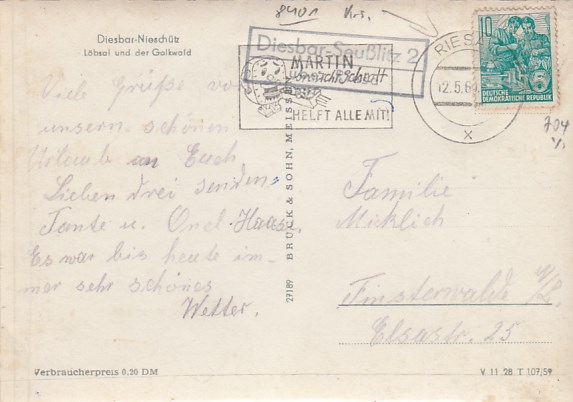 8401 Krs.
Diesbar-Nieschütz
Löbsal und der Golkwald
Diesbar-Seußlitz 2
MARTIN
braucht Schrott
HELFT ALLE MIT!
RIESA
12.5.60
x
10
5
DEUTSCHE
DEMOKRATISCHE REPUBLIK
704
Viele Grüße von
unserm schönen
Urlaub an Euch
Lieben drei senden
Tante u. Onel Hasse.
Es war bis heute im-
mer sehr schönes
Wetter.
27189 BRÜCK & SOHN, MEISSEN
Familie
Micklich
Finsterwalde N/L.
Elsastr. 25
Verbraucherpreis 0,20 DM
V 11 28 T 107/59